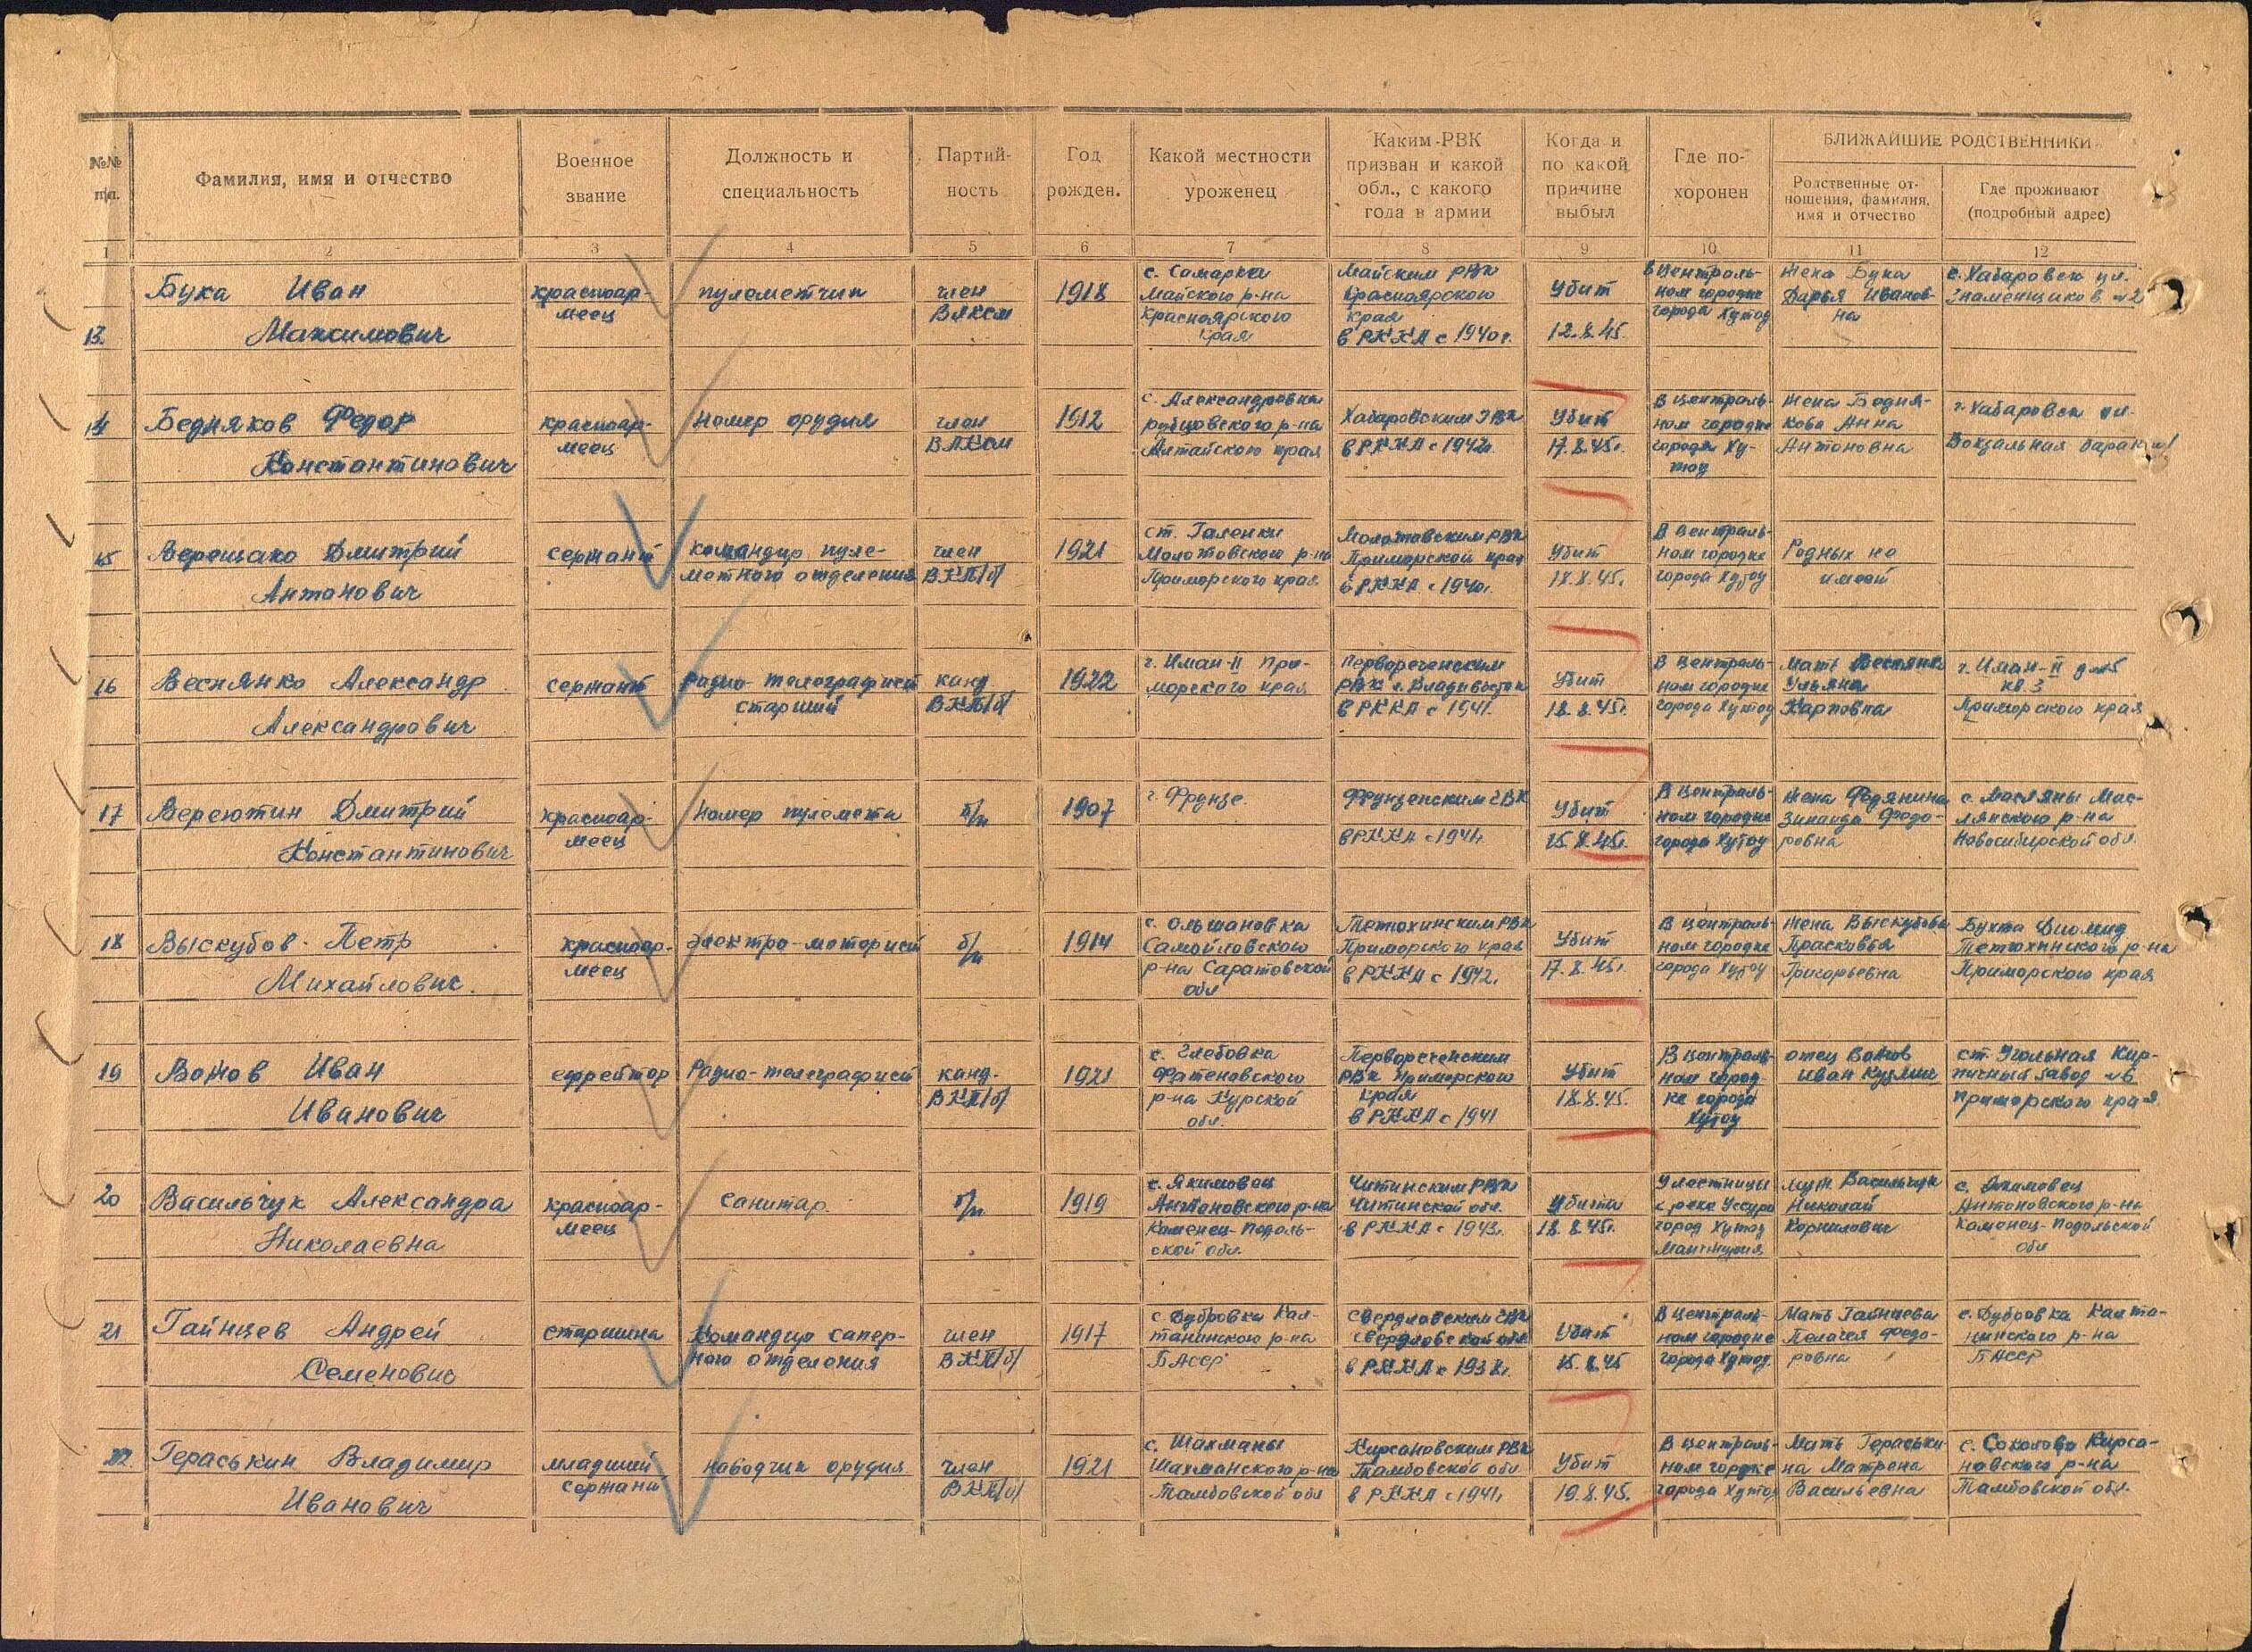 №№ п/п.
Фамилия, имя и отчество
Военное
звание
Должность и
специальность
Партий-
ность
Год
рожден.
Какой местности
уроженец
Каким РВК
призван и какой
обл., с какого
года в армии
Когда и
по какой
причине
выбыл
Где по-
хоронен
БЛИЖАЙШИЕ РОДСТВЕННИКИ
Родственные от-
ношения, фамилия,
имя и отчество
Где проживают
(подробный адрес)
1 2 3 4 5 6 7 8 9 10 11 12
13.
Бука Иван
Максимович
красноар-
меец
пулеметчик
член
ВЛКСМ
1918
с. Самарка
Майского р-на
Красноярского
края
Майским РВК
Красноярского
края
в РККА с 1940 г.
Убит
12.8.45.
в Централь-
ном городке
города Хутоу
жена Бука
Дарья Иванов-
на
г. Хабаровск ул.
Знаменщиков №2
14
Бедняков Федор
Константинович
красноар-
меец
Номер орудия
член
ВЛКСМ
1912
с. Александровка
рубцовского р-на
Алтайского края
Хабаровским ГВК
в РККА с 1942г.
Убит
17.8.45г.
В Централь-
ном городке
города Ху-
тоу
жена Бедня-
кова Анна
Антоновна
г. Хабаровск ул.
Вокзальная барак №1
15
Верещако Дмитрий
Антонович
сержант
командир пуле-
метного отделения
член
ВКП/б/
1921
ст. Галенки
Молотовского р-на
Приморского края
Молотовским РВК
Приморской края
в РККА с 1940г.
Убит
18.8.45г.
В Централь-
ном городке
города Хутоу
Родных не
имеет
16
Веснянко Александр
Александрович
сержант
Радио-телеграфист
старший
канд.
ВКП/б/
1922
г. Иман-II При-
морского края
Первореченским
РВК г. Владивосток
в РККА с 1941.
Убит
18.8.45г.
В Централь-
ном городке
города Хутоу
Мать Веснянко
Ульяна
Карповна
г. Иман-II д №5
кв. 3
Приморского края
17
Веретин Дмитрий
Константинович
красноар-
меец
Номер пулемета
б/п
1907
г. Фрунзе.
Фрунзенским ГВК
в РККА с 1941г.
Убит
15.8.45г.
В Централь-
ном городке
города Хутоу
жена Федянина
Зинаида Федо-
ровна
с. Масляны Мас-
лянского р-на
Новосибирской обл.
18
Выскубов Петр
Михайлович.
красноар-
меец
Электро-моторист
б/п
1914
с. Ольшановка
Самойловского
р-на Саратовской
обл
Тетюхинским РВК
Приморского края
в РККА с 1942г.
Убит
17.8.45г.
В централь-
ном городке
города Хутоу
жена Выскубова
Прасковья
Григорьевна
Бухта Диомид
Тетюхинского р-на
Приморского края
19
Вотов Иван
Иванович
ефрейтор
Радио-телеграфист
канд.
ВКП/б/
1921
с. Глебовка
Фатеновского
р-на Курской
обл.
Первореченским
РВК Приморского
края
в РККА с 1941
Убит
18.8.45.
В централь-
ном город-
ке города
Хутоу
отец Вотов
Иван Кузмич
ст. Угольная Кир-
пичный завод №6
Приморского края.
20
Васильчук Александра
Николаевна
красноар-
меец
Санитар.
б/п
1919
с. Якимовец
Антоновского р-на
Каменец-Подоль-
ской обл.
Читинским РВК
Читинской обл.
в РККА с 1943г.
Убита
18.8.45г.
У лестницы
к реке Уссури
город Хутоу
Манчжурия.
муж Васильчук
Николай
Корнилович
с. Якимовец
Антоновского р-на
Каменец-Подольской
обл
21
Гайнцев Андрей
Семенович
старшина
Командир сапер-
ного отделения
член
ВКП/б/
1917
с. Дубровка Кал-
танинского р-на
БАССР
Свердловским ГВК
Свердловской обл.
в РККА с 1938г.
Убит
15.8.45
В Централь-
ном городке
города Хутоу.
Мать Гайнцева
Пелагея Федо-
ровна
с. Дубровка Калта-
нинского р-на
БАССР
22
Гераськин Владимир
Иванович
младший
сержант
Наводчик орудия
член
ВКП/б/
1921
с. Шахманы
Шахманского р-на
Тамбовской обл
Кирсановским РВК
Тамбовской обл
в РККА с 1941г.
Убит
19.8.45.
В Централь-
ном городке
города Хутоу
Мать Гераськи-
на Матрена
Васильевна
с. Соколово Кирса-
новского р-на
Тамбовской обл.